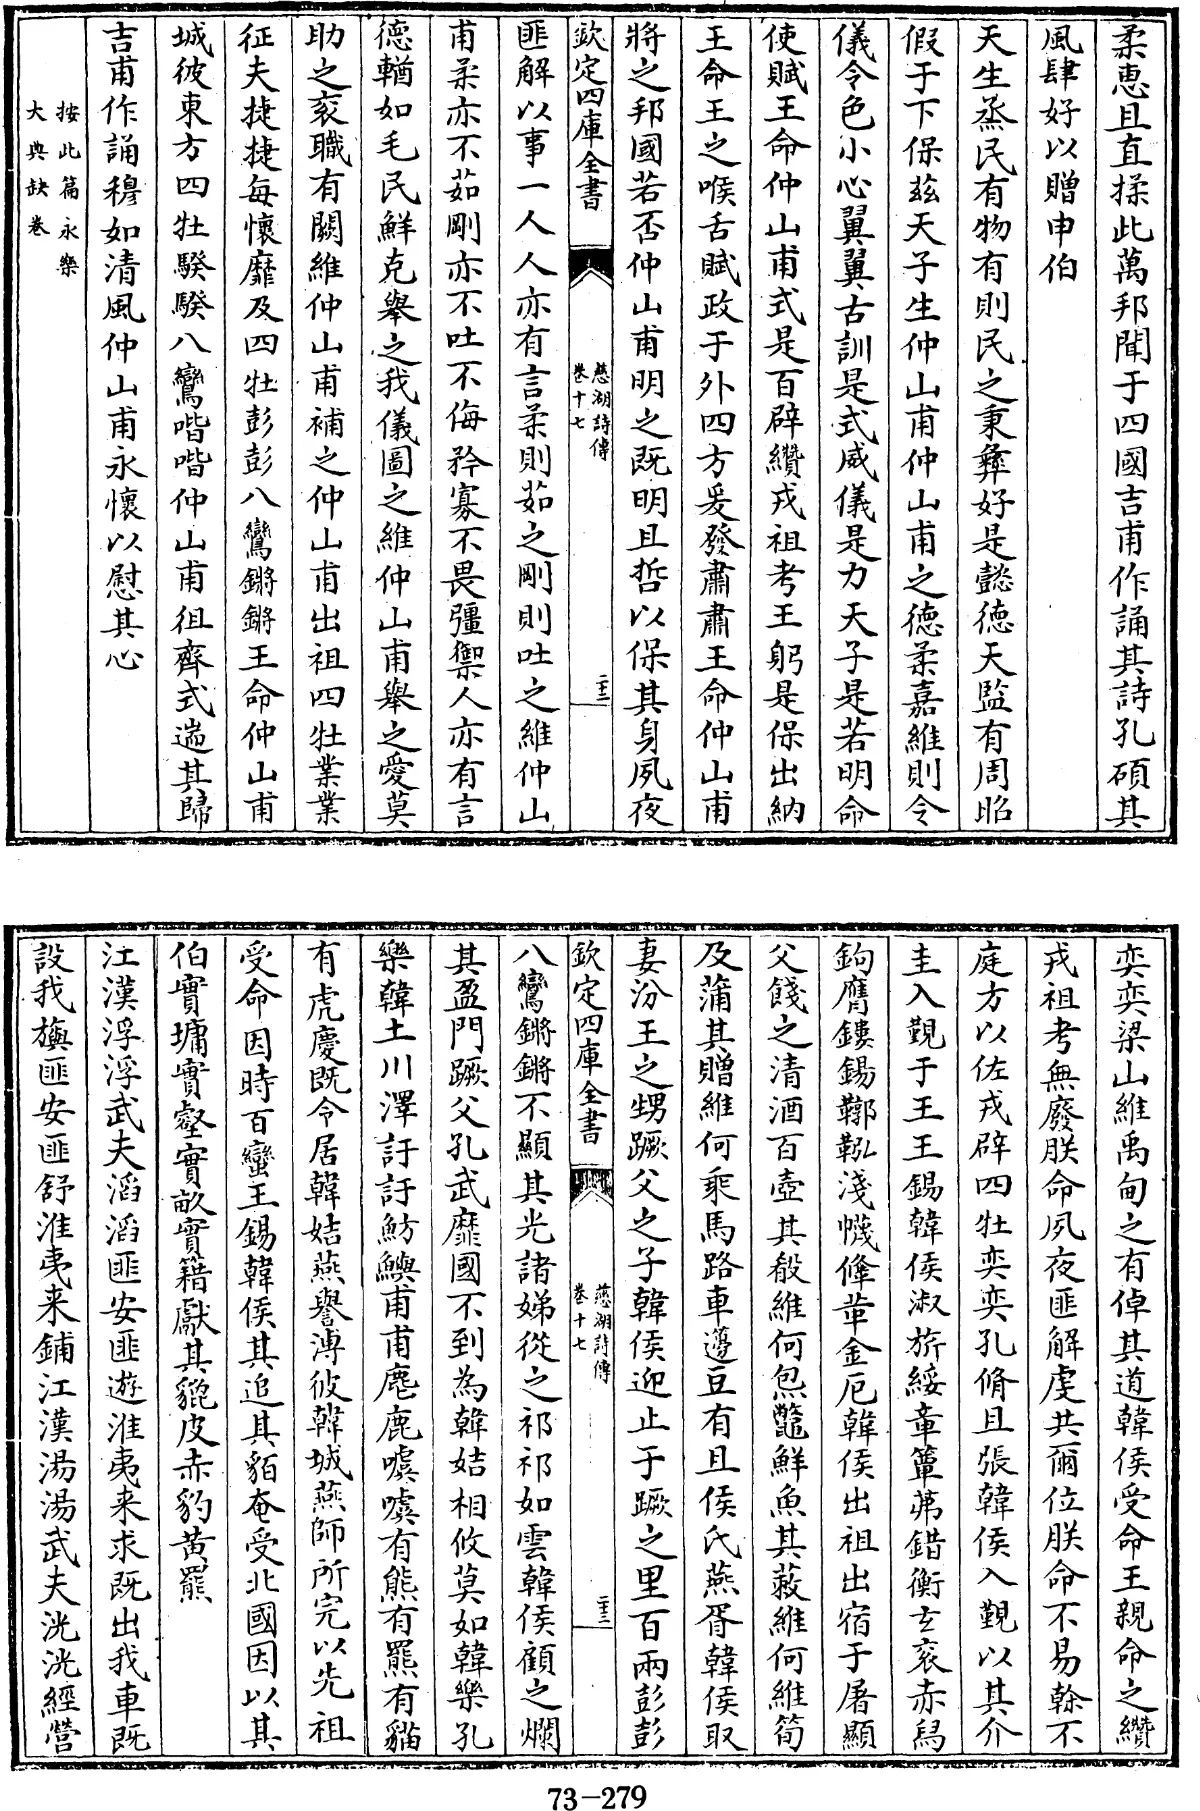 柔惠且直揉此萬邦聞于四國吉甫作誦其詩孔碩其
風肆好以贈申伯
天生烝民有物有則民之秉彝好是懿德天監有周昭
假于下保茲天子生仲山甫仲山甫之德柔嘉維則令
儀令色小心翼翼古訓是式威儀是力天子是若明命
使賦王命仲山甫式是百辟纘戎祖考王躬是保出納
王命王之喉舌賦政于外四方爰發肅肅王命仲山甫
將之邦國若否仲山甫明之既明且哲以保其身夙夜
欽定四庫全書
慈湖詩傳
卷十七
二十二
匪解以事一人人亦有言柔則茹之剛則吐之維仲山
甫柔亦不茹剛亦不吐不侮矜寡不畏彊禦人亦有言
德輶如毛民鮮克舉之我儀圖之維仲山甫舉之愛莫
助之衮職有闕維仲山甫補之仲山甫出祖四牡業業
征夫捷捷每懷靡及四牡彭彭八鸞鏘鏘王命仲山甫
城彼東方四牡騤騤八鸞喈喈仲山甫徂齊式遄其歸
吉甫作誦穆如清風仲山甫永懷以慰其心
按此篇永樂
大典缺卷
奕奕梁山維禹甸之有倬其道韓侯受命王親命之纘
戎祖考無廢朕命夙夜匪解虔共爾位朕命不易榦不
庭方以佐戎辟四牡奕奕孔脩且張韓侯入覲以其介
圭入覲于王王錫韓侯淑旂綏章簟茀錯衡玄衮赤舄
鉤膺鏤錫鞹鞃淺幭鞗革金厄韓侯出祖出宿于屠顯
父餞之清酒百壺其殽維何炰鼈鮮魚其蔌維何維筍
及蒲其贈維何乘馬路車籩豆有且侯氏燕胥韓侯取
妻汾王之甥蹶父之子韓侯迎止于蹶之里百兩彭彭
欽定四庫全書
慈湖詩傳
卷十七
二十三
八鸞鏘鏘不顯其光諸娣從之祁祁如雲韓侯顧之爛
其盈門蹶父孔武靡國不到為韓姞相攸莫如韓樂孔
樂韓土川澤訏訏魴鱮甫甫麀鹿噳噳有熊有羆有貓
有虎慶既令居韓姞燕譽溥彼韓城燕師所完以先祖
受命因時百蠻王錫韓侯其追其貊奄受北國因以其
伯實墉實壑實畝實籍獻其貔皮赤豹黃羆
江漢浮浮武夫滔滔匪安匪遊淮夷来求既出我車既
設我旟匪安匪舒淮夷来鋪江漢湯湯武夫洸洸經營
73-279